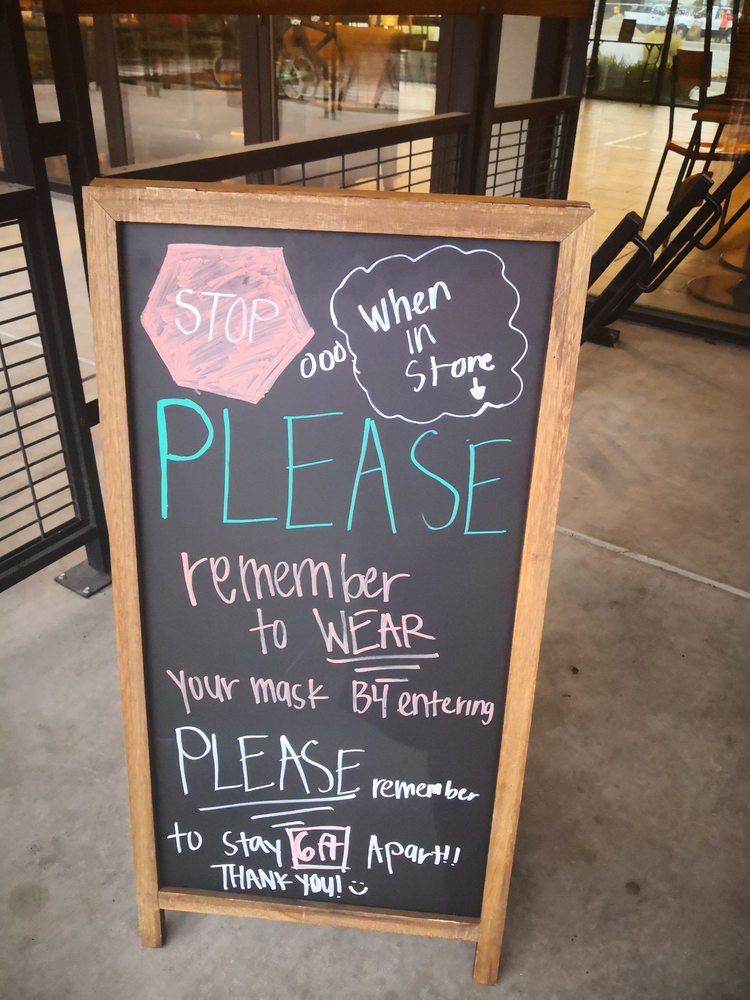 STOP
When
in
Store
PLEASE
remember
to WEAR
your mask B4 entering
PLEASE remember
to stay 6ft Apart!!
THANK YOU!